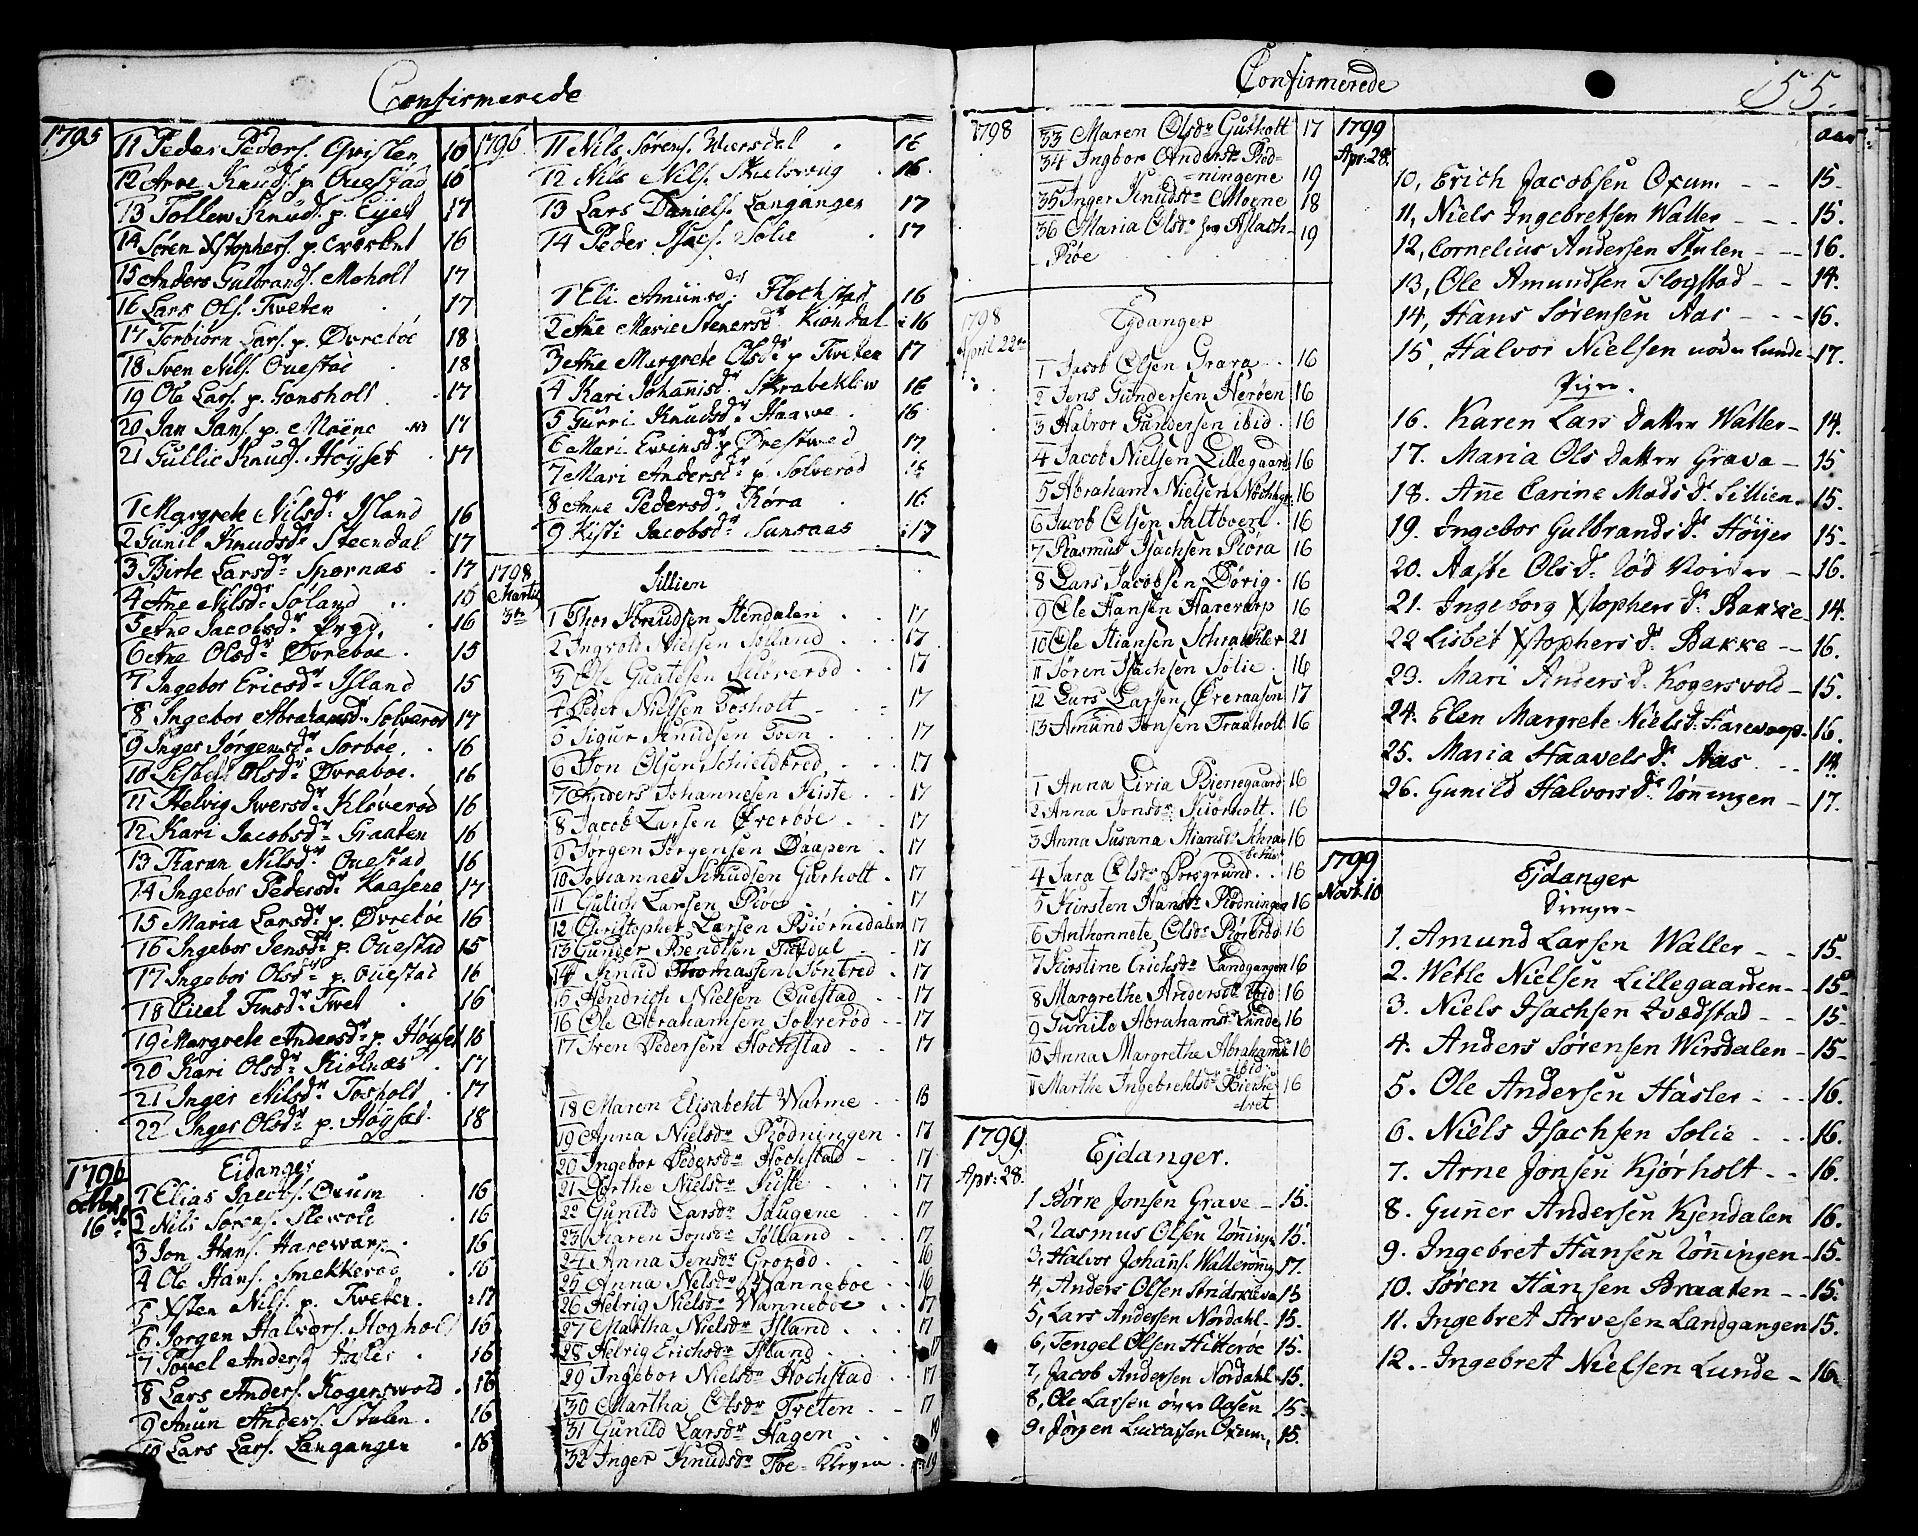 Confirmerede
1795
11 Peder Peders. Qvisten 16
12 Arne Knuds. p. Ouestad 16
13 Tollew Knuds. p. Eyet 17
14 Søren Xstophers. p. 16
15 Anders Gulbrands. Moholt 17
16 Lars Ols. Tweten 17
17 Torbiørn Lars. p. Øvrebøe 18
18 Sven Nils. Ouestad 18
19 Ole Lars. p. Gonsholt 17
20 Jan Jans. p. Moene 17
21 Gullic Knuds. Höyset 17
1 Margrete Nilsdr Island 16
2 Gunil Knudsdr Steendal 17
3 Birte Larsdr Spornæs 17
4 Ane Nilsdr Søland 15
5 Ane Jacobsdr Bryd 16
6 Ane Olsdr Øvreboe 15
7 Ingebor Ericsdr Island 15
8 Ingebor Abrahamsd. Solverød 17
9 Inger Jørgensdr Sorbøe 16
10 Lisbet Olsdr Øvreboe 16
11 Helvig Iwersdr Kløverød 16
12 Kari Jacobsdr Graaten 16
13 Karan Nilsdr Ouestad 16
14 Ingebor Pedersdr Kaasene 17
15 Maria Larsdr p. Øvreboe 16
16 Ingebor Jensdr p. Ouestad 15
17 Ingebor Olsdr p. Ouestad 16
18 Finsdr Twet 16
19 Margrete Andersdr p. Höyset 16
20 Kari Olsdr Kiølnæs 17
21 Inger Nilsdr Fosholt 17
22 Inger Olsdr p. Höyset 18
1796
Octbr
16de
Eidanger
1 Elias Jacobs. Oxum 16
2 Nils Sørens. Stewold 16
3 Jon Hans. Harewarp 16
4 Ole Hans. Smekkerød 16
5 Xsten Nils. p. Tweten 17
6 Jørgen Halvors. Skogholt 16
7 Povel Anders. Hasler 16
8 Lars Anders. Kogerswold 16
9 Amun Anders. Stulen 16
10 Lars Lars. Langangen 16
1796
11 Nils Sørens. Wiersdal 16
12 Nils Nils. Skielsvig 16
13 Lars Daniels. Langangen 17
14 Peder Isacs. Solie 17
1 Eli Amunsdr Flochstad 16
2 Ane Marie Stenersdr Kiøndal 16
3 Ane Margrete Olsdr p. Tweten 17
4 Kari Johannisdr Skrabekliw 16
5 Gurri Knudsdr Haawe 16
6 Mari Ewinsdr p. Ørestwed 17
7 Mari Andersdr p. Solverød 16
8 Ane Pedersdr Røra 16
9 Kisti Jacobsdr Sunsaas 17
1798
Martij
3de
Sillien
1 Thor Knudsen Stendalen 17
2 Ingvold Nielsen Søeland 17
3 Ole Gunersen Kløverød 17
4 Peder Nielsen Fosholt 17
5 Sigur Knudsen Toen 17
6 Jon Olsen Schieldbred 17
7 Anders Johannesen Kiste 17
8 Jacob Larsen Øverbøe 17
9 Jørgen Jørgensen Daapen 17
10 Johannes Knudsen Gurholt 17
11 Gulich Larsen Riøe
12 Christopher Larsen Biørnedalen 17
13 Gunder Bendtsen Taldal 17
14 Knud Thomassen Sontred 17
15 Hendrich Nielsen Ouestad 17
16 Ole Abrahamsen Solverød 17
17 Sven Pedersen Hochstad 17
18 Maren Elisabeht Warme 18
19 Anna Nielsdr Rødningen 17
20 Ingebor Pedersdr Hochstad 17
21 Birthe Nielsdr Kiste 17
22 Gunild Larsdr Haugene 17
23 Karen Jonsdr Sølland 17
24 Anna Jensdr Grorød 16
25 Anna Nielsdr Wanneboe 16
26 Helvig Nielsdr Wanneboe 17
27 Martha Nielsdr Island 17
28 Helvig Erichsdr Island 17
29 Ingebor Nielsdr Hochstad 17
30 Martha Olsdr Treten 17
31 Gunild Larsdr Hagen 19
32 Inger Knudsdr Toe- Kleven 19
Confirmerede
155.
1798
33 Maren Olsdr Gurholt 17
34 Ingbor Andersdr Rød-
ningene 19
35 Inger Knudsdr Moene 18
36 Maria Olsdr fra Aslach- 19
Riøe
1798
April 22de
Eydanger
1 Jacob Olsen Grava 16
2 Jens Gundersen Herøen 16
3 Halvor Gundersen ibid. 16
4 Jacob Nielsen Lillegaard 16
5 Abraham Nielsen Nøchleg. 16
6 Jacob Olsen Saltboen 16
7 Rasmus Isachsen Røra 16
8 Lars Jacobsen Dørig 16
9 Ole Hansen Harevarp 16
10 Ole Stiansen Schrabekler 21
11 Søren Isachsen Solie 16
12 Lars Larsen Øveraasen 17
13 Amund Jensen Traaholt 16
1 Anna Livia Bierregaard 16
2 Anna Jonsdr Kiørholt 16
3 Anna Susana Stiansdr Schra- 16
bekler
4 Sara Olsdr Porsgrund 16
5 Kirsten Hansdr Rødningen 16
6 Anthonnete Olsdr Rørerød 16
7 Kirstine Erichsdr Landgangen 16
8 Margrethe Andersdr ibid 16
9 Gunild Abrahamsdr Lunde 16
10 Anna Margretha Abrahamsdr 16
ibid
11 Marthe Ingebrechtsdr 16
tvet
1799.
Apr: 28.
Ejdanger.
1, Børre Jonsen Grave 15.
2, Rasmus Olsen Rønninge 15.
3, Halvor Johans. Wallerønning 17.
4, Anders Olsen Stridsklev 15
5, Lars Andersen Nordahl 15.
6, Tengel Olsen Hitterøe 15.
7, Jacob Andersen Nordahl 15.
8, Ole Larsen øvre Aasen 15.
9. Jørgen Lucassen Oxum, 15.
1799
Apr: 28.
aar
10, Erich Jacobsen Oxum 15.
11, Niels Ingebretsen Waller 15.
12, Cornelius Andersen Stulen 16.
13, Ole Amundsen Flogstad 14.
14, Hans Sørensen Aas 16.
15, Halvor Nielsen neder Lunde 17.
Piger.
16. Karen Lars Datter Waller 14.
17. Maria Ols Datter Grava 15
18. Anne Carine Mads Dr. Sillien 15.
19. Ingebor Gulbrands Dr. Høyes 15.
20. Aaste Ols Dr. Rød Norder 16.
21. Ingeborg Xstophers Dr. Bakke 14.
22 Lisbet Xstophers Dr. Bakke 16.
23. Mari Anders Dr. Kogersvold 15.
24. Elen Margrete Niels Dr. Harevarp 16.
25. Maria Haavels Dr. Aas 14.
26. Gunild Halvors Dr. Rønningen 17.
1799
Novb. 10
Ejdanger
Drenger
1. Amund Larsen Waller 15.
2. Wetle Nielsen Lillegaarden 15.
3. Niels Isachsen Tvedstad 15.
4. Anders Sørensen Wirsdalen 15.
5. Ole Andersen Hasler 16.
6. Niels Isachsen Solie 16.
7. Arne Jonsen Kjørholt 16.
8. Gunner Andersen Kjendalen 16.
9. Ingebret Hansen Rønningen 15.
10. Søren Hansen Braaten 15.
11. Ingebret Arvesen Landgangen 15.
12. Ingebret Nielsen Lunde 16.